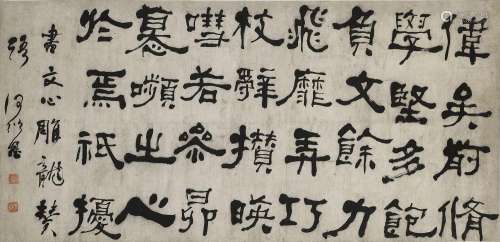 偉矣前脩
學堅多飽
負文餘力
飛靡弄巧
枝辭攢暎
嘒若參昴
慕嚬之心
於焉祇擾
書文心雕龍贊
語 何紹基